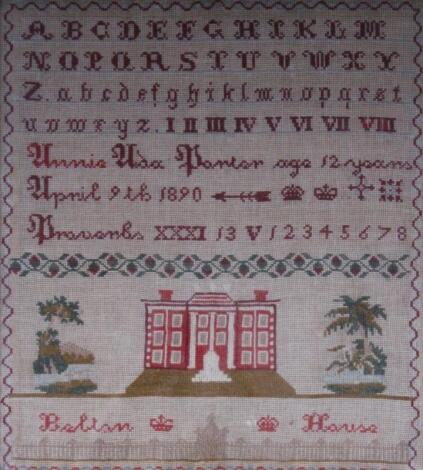 A B C D E F G H I K L M
N O P Q R S T U V W X Y
Z. a b c d e f g h i k l m n o p q r s t
u v w x y z. I II III IV V VI VII VIII
Annie Ada Panter age 12 years
April 9th 1890
Proverbs XXXI 13 V 1 2 3 4 5 6 7 8
Belton House